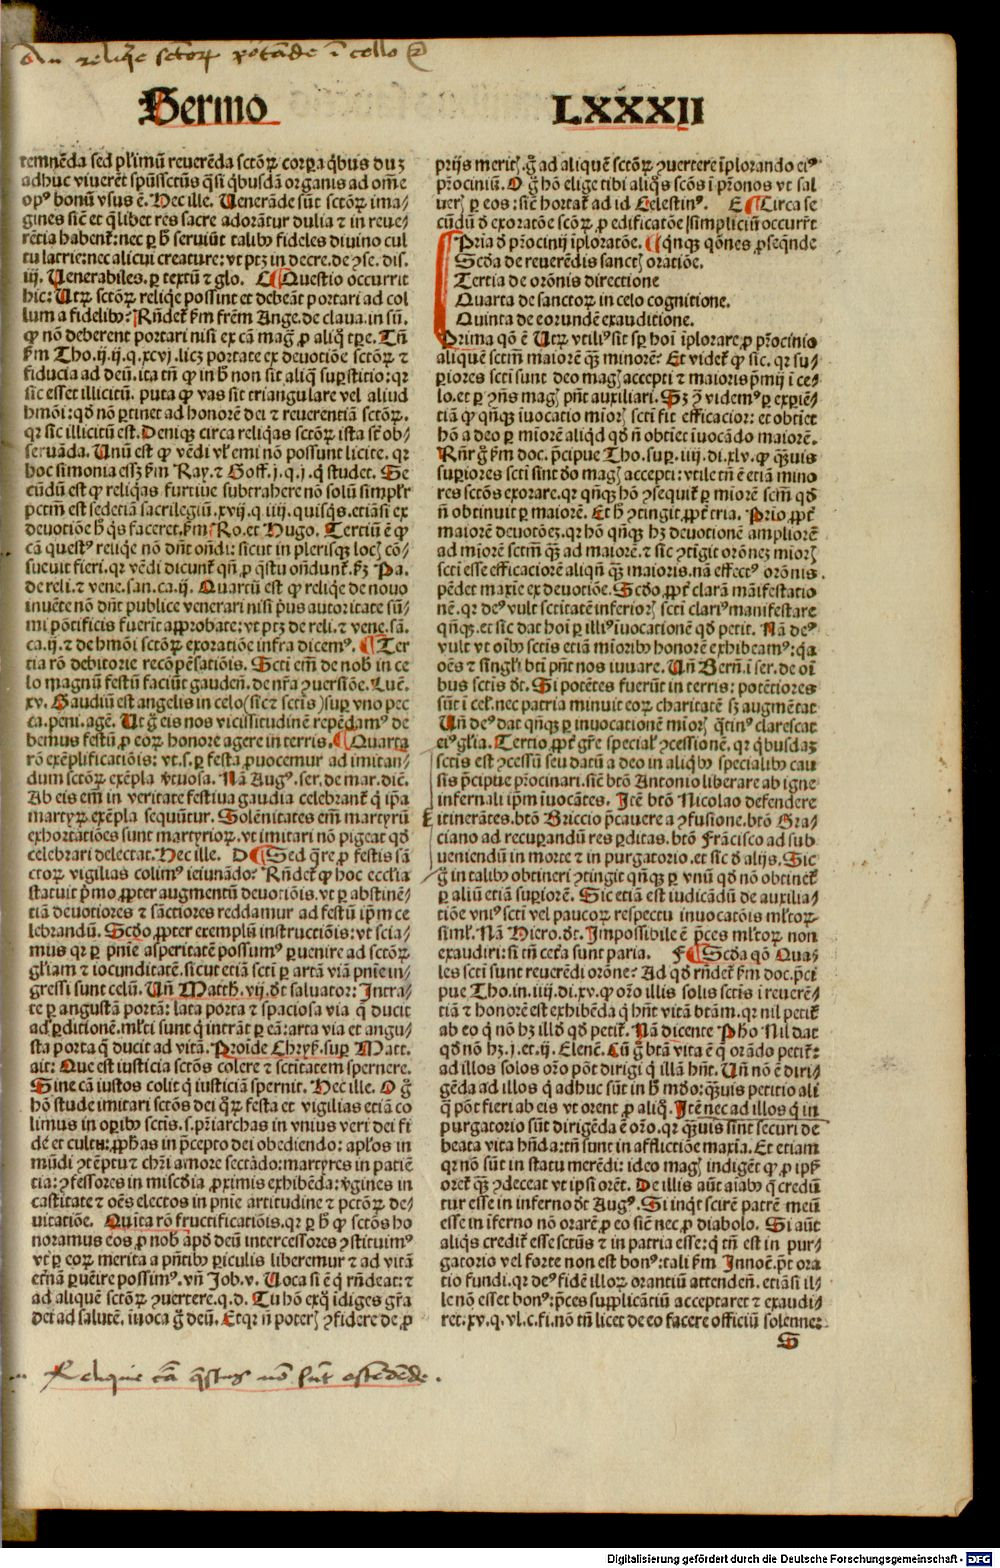 An reliq̃e sctorꝝ portãde ĩ collo
Sermo LXXXII
temnẽda sed plꝛimũ reuerẽda sctõꝝ corpꝛa qͥbus duʒ
adhuc viuerẽt spũssctũs qͣsi qͥbusdã organis ad om̃e
opꝰ bonũ vsus ẽ. Hec ille. Uenerãde sũt sctõꝝ ima⸗
gines sicẽ et qͥlibet res sacre adorãtur dulia ⁊ in reue⸗
rẽtia habenẽ: nec ꝑ hͦ seruiũt talibꝰ fideles diuino cul
tu latrie: nec alicui creature: vt ptʒ in decre. de ꝯse. dis.
iij. Uenerabiles. ꝑ textũ ⁊ glo. C ¶Questio occurrit
hic: Utꝝ sctõꝝ reliqͥe possint et debeãt portari ad col
lum a fidelibꝰ? Rñdeẽ ẜm frẽm Ange. de claua. in sũ.
ꝙ nõ deberent portari nisi ex cã magͣ ꝓ aliqͦ tꝑe. Tñ
ẜm Tho. ij. ij. q. xcvj. licʒ portate ex deuotiõe sctõꝝ ⁊
fiducia ad deũ. ita tñ ꝙ in hͦ non sit aliqͣ suꝑstitio: qꝛ
sic esset illicitũ. puta ꝙ vas sit triangulare vel aliud
hmõi: qd̃ nõ ꝑtinet ad honorẽ dei ⁊ reuerentiã sctõꝝ.
qꝛ sic illicitũ est. Deniqꝫ circa reliqͥas sctõꝝ ista sẽ ob⸗
seruãda. Unũ est ꝙ vẽdi vl̃ emi nõ possunt licite. qꝛ
hoc simonia essʒ ẜm Ray. ⁊ Goff. j. q. j. qͥ studet. Se
cũdũ est ꝙ reliqͥas furtiue subtrahere nõ solũ simplr̃
pctm̃ est sed etiã sacrilegiũ. xvij. q. iiij. quisqͥs. etiãsi ex
deuotiõe hͦ qͥs faceret. ẜm Ro. et Hugo. Tertiũ ẽ ꝙ
cã questꝰ reliqͥe nõ dñt oñdi: sicut in plerisqꝫ locꝭ cõ⸗
sueuit fieri. qꝛ vẽdi dicunẽ qñ ꝓ qͣstu oñdunẽ. ẜʒ Pa.
de reli. ⁊ vene. san. ca. ij. Quartũ est ꝙ reliqͥe de nouo
inuẽte nõ dñt publice venerari nisi pͥus autoritate sũ⸗
mi põtificis fuerit approbate: vt ptʒ de reli. ⁊ vene. sã.
ca. ij. ⁊ de hmõi sctõꝝ exoratiõe infra dicemꝰ. ¶Ter
tia rõ debitorie recõpẽsatiõis. Scti em̃ de nob̃ in ce
lo magnũ festũ faciũt gaudeñ. de nr̃a ꝯuersiõe. Luẽ.
xv. Gaudiũ est angelis in celo (sicẽ ⁊ sctis) suꝑ vno pec
ca. peni. agẽ. Ut gͦ eis nos vicissitudinẽ repẽdamꝰ de
bemus festũ ꝓ eoꝝ honore agere in terris. ¶Quarta
rõ exẽplificatiõis: vt. s. ꝑ festa ꝓuocemur ad imitan⸗
dum sctõꝝ exẽpla v̓tuosa. Nã Augꝰ. ser. de mar. dic̃.
Ab eis em̃ in veritate festiua gaudia celebranẽ qͥ ip̃a
martyꝝ exẽpla sequũtur. Solẽnitates em̃ martyrũ
exhortatiões sunt martyrioꝝ. vt imitari nõ pigeat qd̃
celebrari delectat. Hec ille. D ¶Sed qͣre ꝓ festis sã
ctoꝝ vigilias colimꝰ ieiunãdo? Rñdeẽ ꝙ hoc eccl̃ia
statuit pͥmo ꝓpter augmentũ deuotiõis. vt ꝑ abstinẽ⸗
tiã deuotiores ⁊ sãctiores reddamur ad festũ ip̃m ce
lebrandũ. Scd̃o ꝓpter exemplũ instructiõis: vt scia⸗
mus qꝛ ꝑ pñie asperitatẽ possumꝰ ꝑuenire ad sctõꝝ
gl̃iam ⁊ iocunditatẽ. sicut etiã scti ꝑ artã viã pñie in⸗
gressi sunt celũ. Uñ Matth̃. vij. dt̃ saluator: Intra⸗
te ꝑ angustã portã: lata porta ⁊ spaciosa via qͥ ducit
ad ꝑditionẽ. ml̃ti sunt qͥ intrãt ꝑ eã: arta via et angu⸗
sta porta qͥ ducit ad vitã. Proĩde Chryẜ. suꝑ Matt.
ait: Que est iusticia sctõs colere ⁊ sctitatem spernere.
Sine cã iustos colit qͥ iusticiã spernit. Hec ille. O gͦ
hõ stude imitari sctõs dei qͦꝝ festa et vigilias etiã co
limus in oꝑibꝰ sctis. s. pͥriarchas in vnius veri dei fi
de et cultu: ꝓphas in pͥcepto dei obediendo: aplos in
mũdi ꝯtẽptu ⁊ chr̃i amore sectãdo: martyres in patiẽ
tia: ꝯfessores in miscd̃ia ꝓximis exhibẽda: v̓gines in
castitate ⁊ oẽs electos in pñie artitudine ⁊ pctõꝝ de⸗
uitatiõe. Quĩta rõ fructificatiõis. qꝛ ꝑ hͦ ꝙ sctõs ho
noramus eos ꝓ nob̃ apd̃ deũ intercessores ꝯstituimꝰ
vt ꝑ eoꝝ merita a pñtibꝰ ꝑiculis liberemur ⁊ ad vitã
etñã ꝑuẽire possimꝰ. vñ Job. v. Uoca si ẽ qͥ rñdeat: ⁊
ad aliquẽ sctõꝝ ꝯuertere. q. d. Tu hõ exqͦ ĩdiges gr̃a
dei ad salutẽ. iuoca gͦ deũ. Et qꝛ ñ poterꝭ ꝯfidere de ꝓ
prijs meritꝭ. gͦ ad aliquẽ sctõꝝ ꝯuertere ĩplorando eiꝰ
pr̃ociniũ. O gͦ hõ elige tibi aliqͦs scõs ĩ pr̃onos vt sal
uerꝭ ꝑ eos: sicẽ hortaẽ ad id Celestinꝰ. E ¶Circa se
cũdũ d̓ exoratõe scõꝝ ꝓ edificatõe simpliciũ occurrr̃t
Pria d̓ pr̃ocinij ĩploratõe. ¶qͥnqꝫ qõnes ꝓseqͥnde
Scd̃a de reuerẽdis sanctꝭ oratiõe.
Tertia de orõnis directione
Quarta de sanctoꝝ in celo cognitione.
Quinta de eorundẽ exauditione.
Prima qõ ẽ Utꝝ vtiliꝰ sit suꝑ hoĩ ĩplorare ꝓ pr̃ocinio
aliquẽ sctm̃ maiorẽ qͣꝫ minorẽ? Et videẽ ꝙ sic. qꝛ su⸗
ꝑiores scti sunt deo magꝭ accepti ⁊ maioris pͥmij ĩ ce⸗
lo. et ꝑ ꝯñs magꝭ pñt auxiliari. Sʒ ꝯ̃ videmꝰ ꝑ experiẽ⸗
tiã ꝙ qñqꝫ iuocatio miorꝭ scti fit efficacior: et obtiet
hõ a deo ꝑ miorẽ aliqd̃ qd̃ ñ obtiet iuocãdo maiorẽ.
Rñr̃ gͦ ẜm doc. pͥcipue Tho. suꝑ. iiij. di. xlv. ꝙ qͣꝫuis
suꝑiores scti sint d̓o magꝭ accepti: vtile tñ ẽ etiã mino
res sctõs exorare. qꝛ qñqꝫ hõ ꝯsequiẽ ꝑ miorẽ sctm̃ qd̃
ñ obtinuit ꝑ maiorẽ. Et hͦ ꝯtingit ꝓpẽ tria. Prio ꝓpẽ
maiorẽ deuotõeʒ. qꝛ hõ qñqꝫ hʒ deuotionẽ ampliorẽ
ad miorẽ sctm̃ qͣꝫ ad maiorẽ. ⁊ sic ꝯtĩgit orõneʒ miorꝭ
scti esse efficaciorẽ aliqñ qͣꝫ maioris. nã effectꝰ orõnis
pẽdet maxĩe ex deuotiõe. Scd̃o ꝓpẽ clarã mãifestatio
nẽ. qꝛ deꝰ vult sctitatẽ inferiorꝭ scti clariꝰ manifestare
qñqꝫ. et sic dat hoĩ ꝑ illiꝰ iuocationẽ qd̃ petit. Nã deꝰ
vult vt oĩbꝰ sctis etiã mioribꝰ honorẽ exhibeamꝰ: qͣ
oẽs ⁊ singl̃i bti pñt nos iuuare. Uñ Berñ. i ser. de oĩ
bus sctis dt̃. Si potẽtes fuerũt in terris: potẽtiores
sũt i cel̃. nec patria minuit eoꝝ charitatẽ sʒ augmẽtat
Uñ deꝰ dat qñqꝫ ꝑ inuocationẽ miorꝭ qͣtinꝰ clarescat
eiꝰ gl̃ia. Tertio ꝓpẽ gr̃e special̃ ꝯcessionẽ. qꝛ qͥbusdaʒ
sctis est ꝯcessũ seu datũ a deo in aliqͥbꝰ specialibꝰ cau
sis pͥcipue pr̃ocinari. sicẽ btõ Antonio liberare ab igne
infernali ip̃m iuocãtes. Itẽ btõ Nicolao defendere
itinerãtes. btõ Briccio pͥcauere a ꝯfusione. btõ Gra⸗
ciano ad recuꝑandũ res ꝑditas. btõ Frãcisco ad sub
ueniendũ in morte ⁊ in purgatorio. et sic d̓ alijs. Sic
gͦ in talibꝰ obtineri ꝯtingit qñqꝫ ꝑ vnũ qd̃ nõ obtineẽ
ꝑ aliũ etiã suꝑiorẽ. Sic etiã est iudicãdũ de auxilia⸗
tiõe vniꝰ scti vel paucoꝝ respectu inuocatõis ml̃toꝝ
siml̃. Nã Hiero. dt̃. Impossibile ẽ pͥces ml̃toꝝ non
exaudiri: si tñ cet̓a sunt paria. F ¶Scd̃a qõ Qua⸗
les scti sunt reuerẽdi orõne? Ad qd̃ rñdeẽ ẜm doc. pͥci
pue Tho. in. iiij. di. xv. ꝙ orõ illis solis sctis i reuerẽ⸗
tiã ⁊ honorẽ est exhibẽda qͥ hñt vitã btãm. qꝛ nil petiẽ
ab eo qͥ nõ hʒ illd̃ qd̃ petiẽ. Nã dicente Ph̃o Nil dat
qd̃ nõ hʒ. j. et. ij. Elenẽ. Cũ gͦ btã vita ẽ qͥ orãdo petiẽ:
ad illos solos orõ põt dirigi qͥ illã hñt. Uñ nõ ẽ diri⸗
gẽda ad illos qͥ adhuc sũt in hͦ mõo: qͣꝫuis petitio ali
qͣ põt fieri ab eis vt orent ꝓ aliqͦ. Itẽ nec ad illos qͥ in
purgatorio sũt dirigẽda ẽ orõ. qꝛ qͣꝫuis sĩnt securi de
beata vita hñda: tñ sunt in afflictiõe maxia. Et etiam
qꝛ nõ sũt in statu merẽdi: ideo magꝭ indigẽt ꝙ ꝓ ipẜ
oreẽ qͣꝫ ꝯdeceat vt ipsi orẽt. De illis aũt aĩabꝰ qͥ credũ
tur esse in inferno dt̃ Augꝰ. Si inqͥt scirẽ patrẽ meũ
esse in ĩferno nõ orarẽ ꝓ eo sicẽ nec ꝓ diabolo. Si aũt
aliqͥs crediẽ esse sctũs ⁊ in patria esse: qͥ tñ est in pur⸗
gatorio vel forte non est bonꝰ: tali ẜm Innoẽ. põt ora
tio fundi. qꝛ deꝰ fidẽ illoꝝ orantiũ attendeñ. etiãsi il⸗
le nõ esset bonꝰ: pͥces supplicãtiũ acceptaret ⁊ exaudi
ret. xv. q. vl. c. fi. nõ tñ licet de eo facere officiũ solenne:
S
Reliquie cã q̃stus nõ sũt ostẽdẽde.
Digitalisierung gefördert durch die Deutsche Forschungsgemeinschaft - DFG